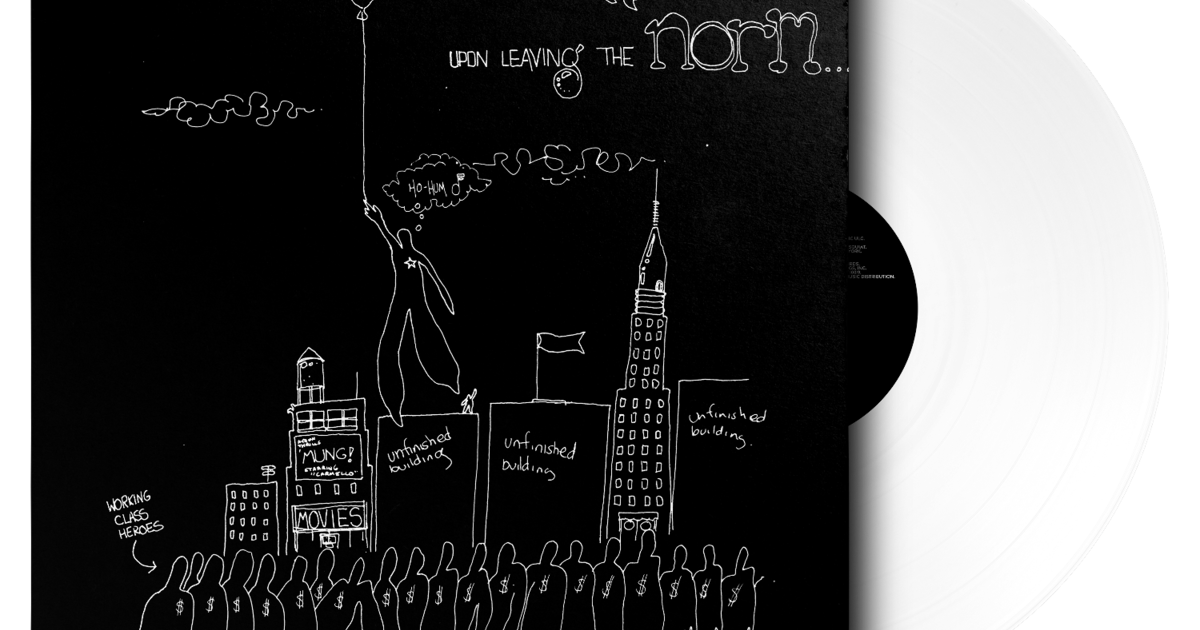 UPON LEAVING THE norm...
HO-HUM
unfinished
building
unfinished
building
unfinished
building.
MUNG!
STARRING
"CARMELLO"
MOVIES
WORKING
CLASS
HEROES
$ $ $ $ $ $ $ $ $ $ $ $ $ $ $ $ $
DISTRIBUTION.